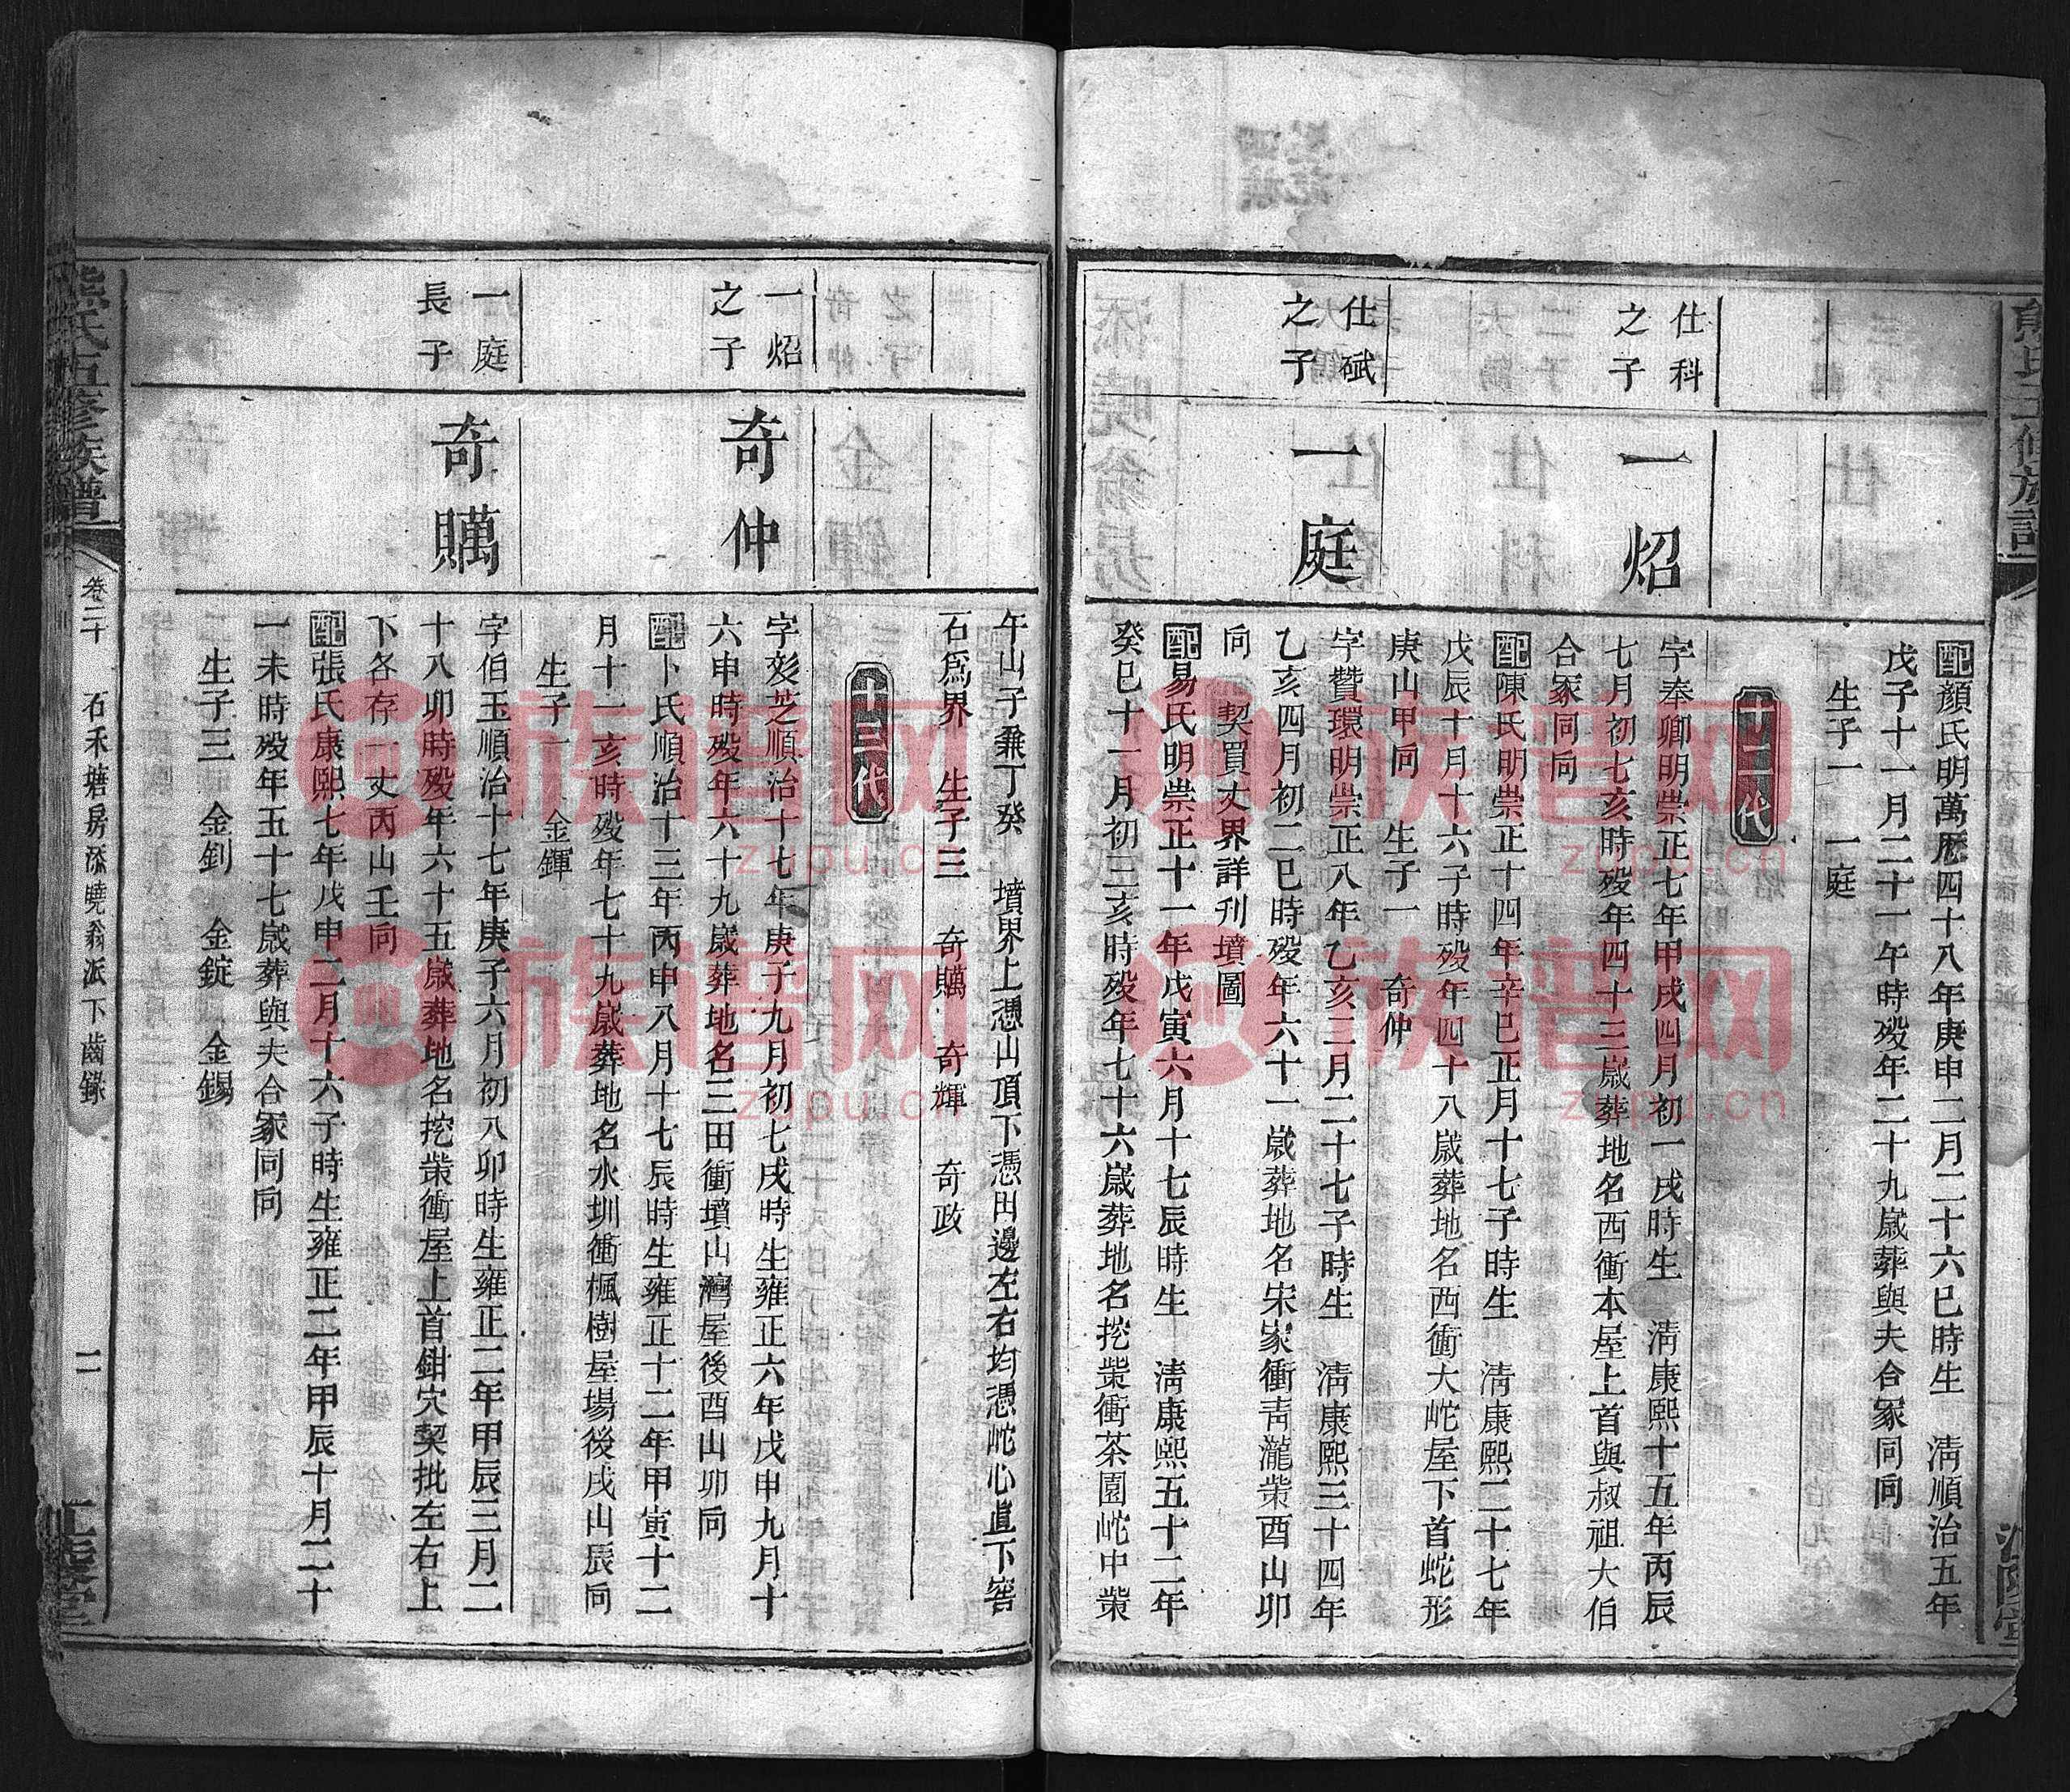 配顏氏明萬厯四十八年庚申二月二十六巳時生　淸順治五年
戊子十一月二十一午時歿年二十九歲葬與夫合冢同向
生子一　一庭
十二代
仕科
之子
一炤
字奉卿明崇正七年甲戌四月初一戌時生　淸康熙十五年丙辰
七月初七亥時歿年四十三歲葬地名西衝本屋上首與叔祖大伯
合冢同向
配陳氏明崇正十四年辛巳正月十七子時生　淸康熙二十七年
戊辰十月十六子時歿年四十八歲葬地名西衝大岮屋下首蛇形
庚山甲向　生子一　奇仲
仕碔
之子
一庭
字贊環明崇正八年乙亥三月二十七子時生　淸康熙三十四年
乙亥四月初二巳時歿年六十一歲葬地名宋家衝靑瀧柴酉山卯
向　契買丈界詳刊墳圖
配易氏明崇正十一年戊寅六月十七辰時生　淸康熙五十二年
癸巳十一月初三亥時歿年七十六歲葬地名挖柴衝茶園岮中柴
午山子兼丁癸　墳界上憑山頂下憑田邊左右均憑岮心直下窖
石爲界　生子三　奇䝧　奇輝　奇政
十三代
一炤
之子
奇仲
字𤼵芝順治十七年庚子九月初七戌時生雍正六年戊申九月十
六申時歿年六十九歲葬地名三田衝墳山灣屋後酉山卯向
配卜氏順治十三年丙申八月十七辰時生雍正十二年甲寅十二
月十一亥時歿年七十九歲葬地名水圳衝楓樹屋場後戌山辰向
生子一　金鏎
一庭
長子
奇䝧
字伯玉順治十七年庚子六月初八卯時生雍正二年甲辰三月二
十八卯時歿年六十五歲葬地名挖柴衝屋上首鉗穴契批左右上
下各存一丈丙山壬向
配張氏康熙七年戊申二月十六子時生雍正二年甲辰十月二十
一未時歿年五十七歲葬與夫合冢同向
生子三　金釗　金錠　金錫
熊氏五修族譜
卷二十　石禾塘房添曉翁派下齒錄
二
族谱网
zupu.cn